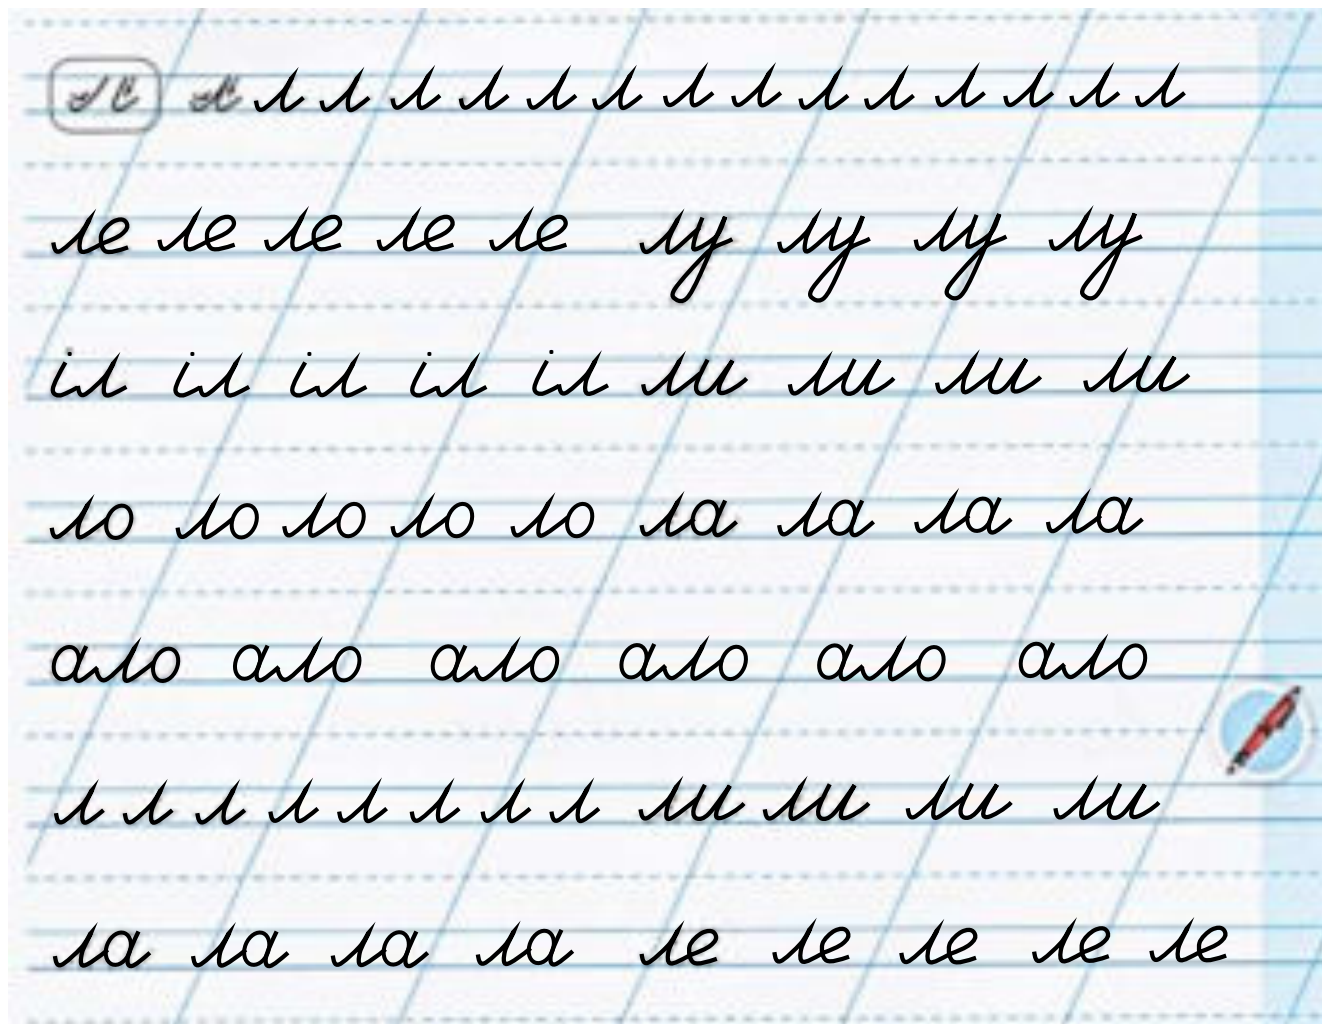 л л л л л л л л л л л л л л л
ле ле ле ле ле лу лу лу лу
іл іл іл іл іл ли ли ли ли
ло ло ло ло ло ла ла ла ла
ало ало ало ало ало ало
л л л л л л л л ли ли ли ли
ла ла ла ла ле ле ле ле ле